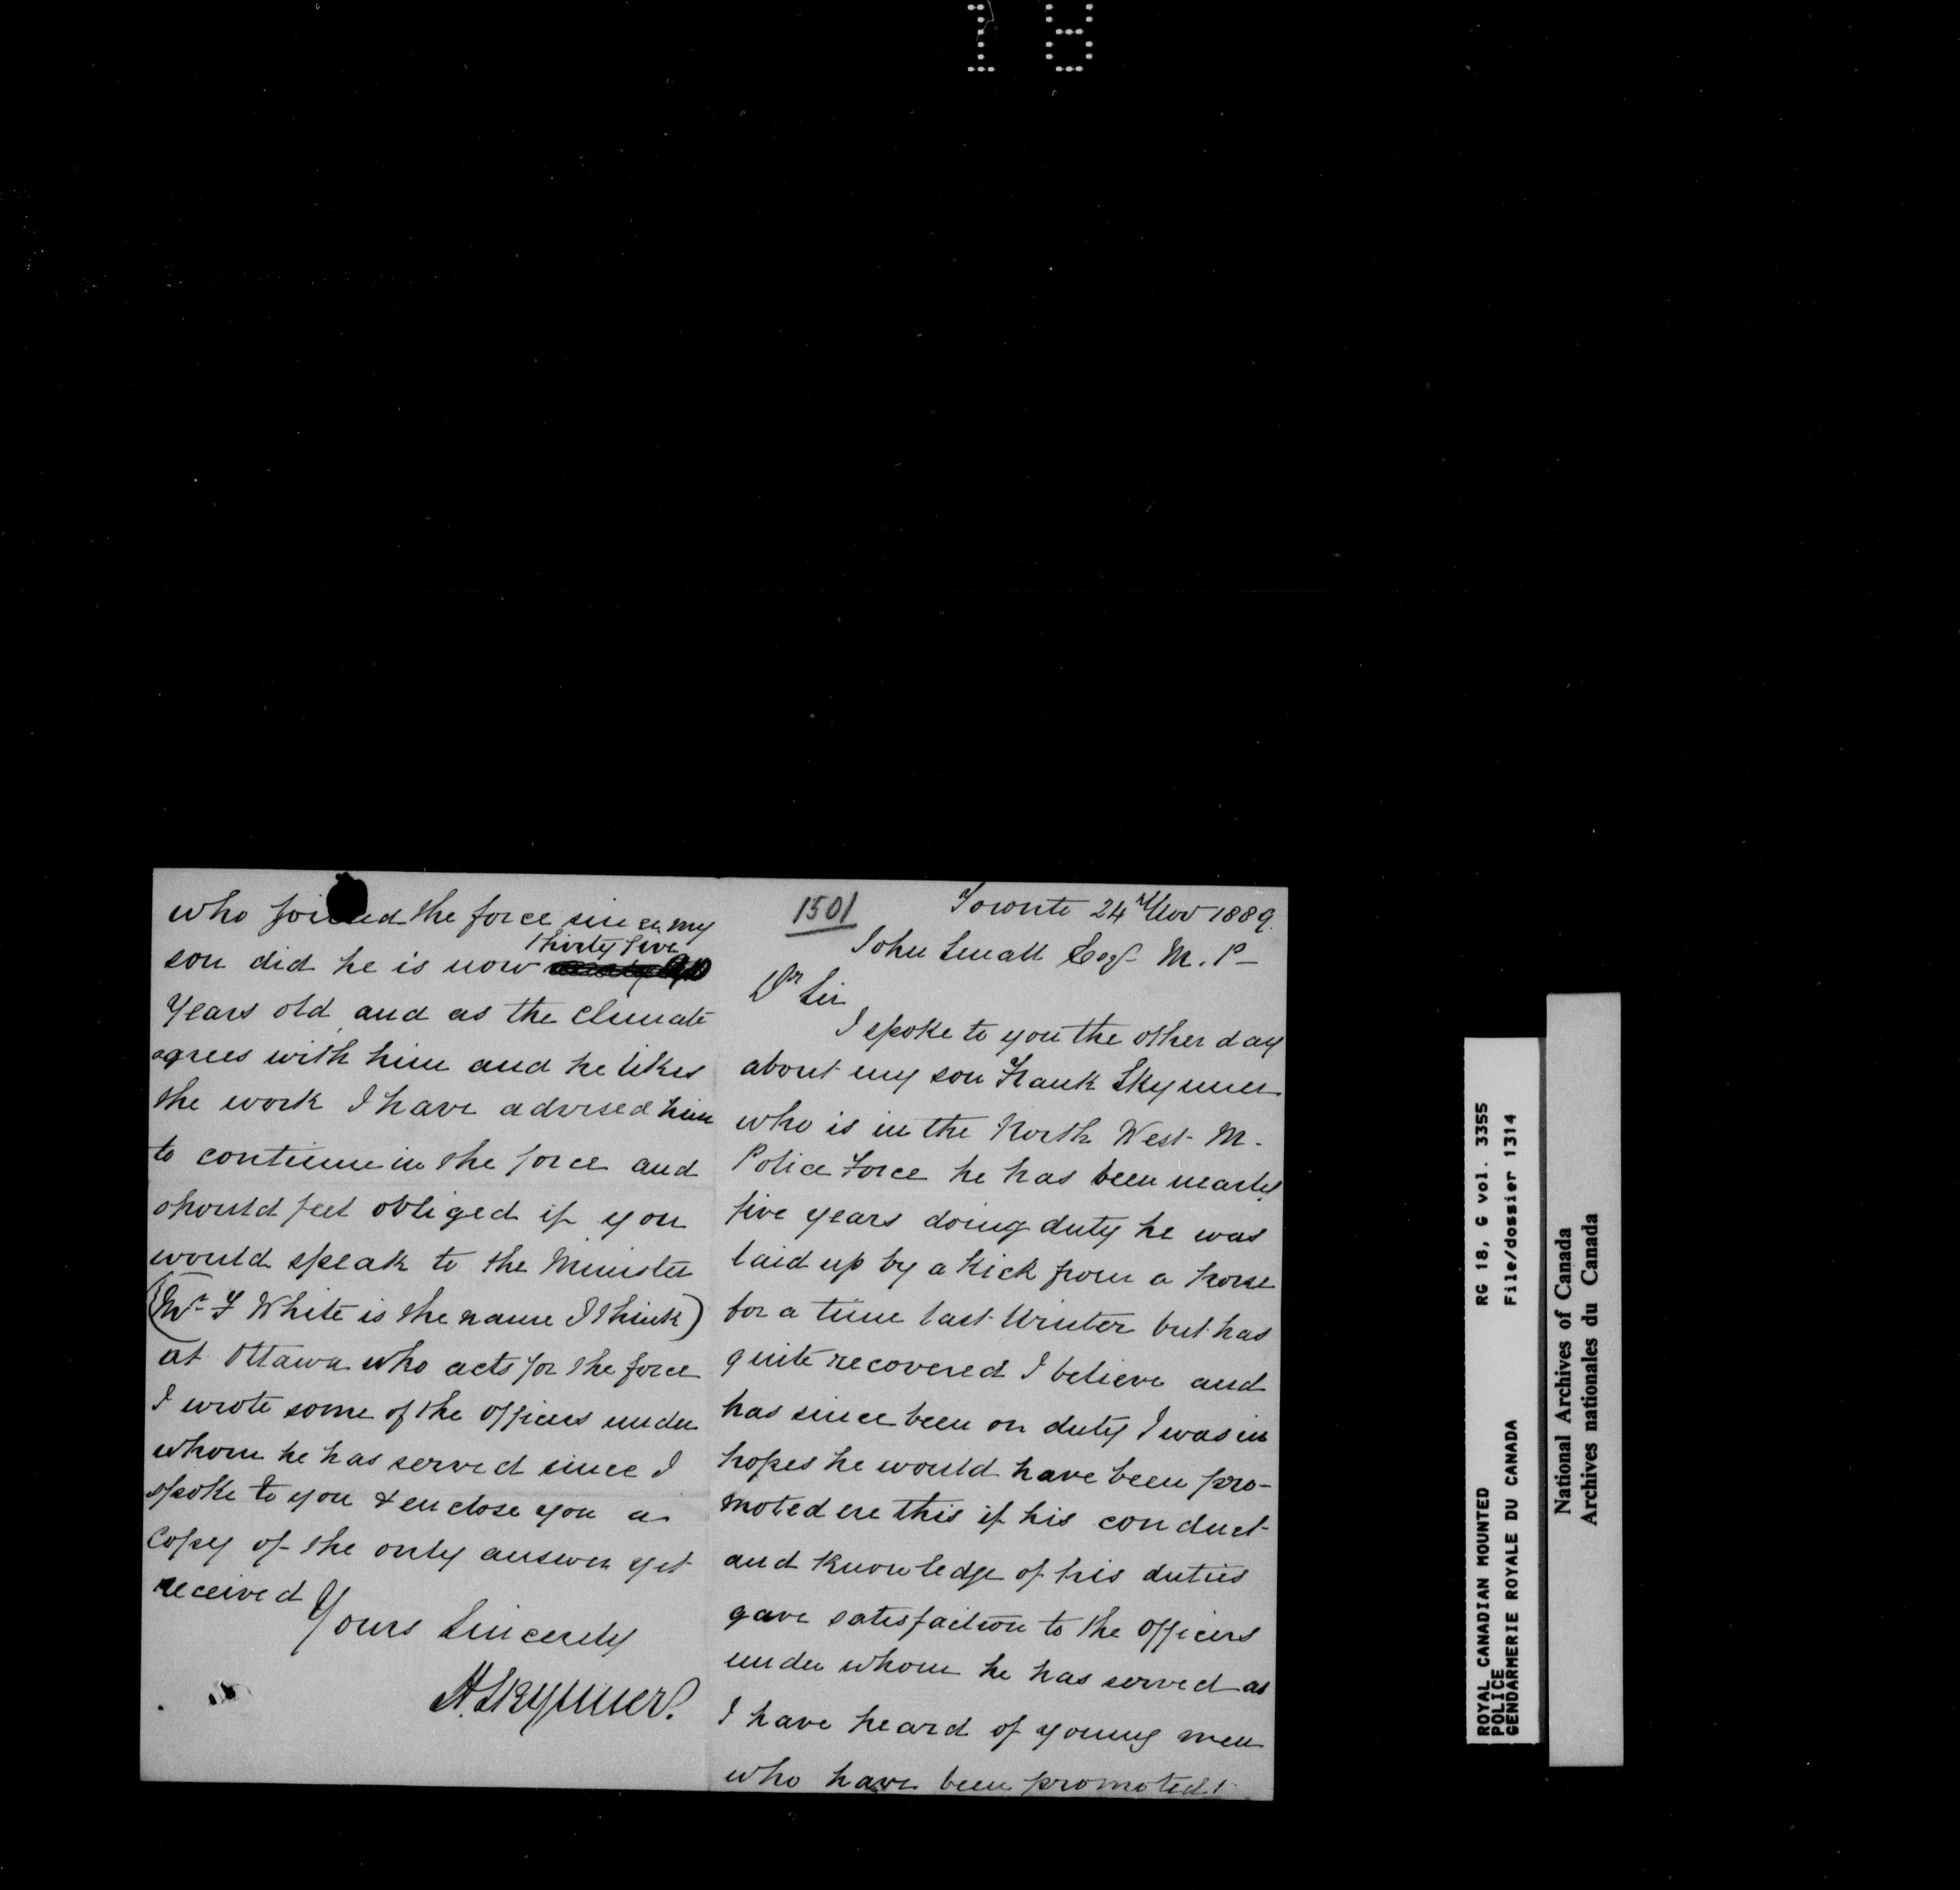 18
1501
Toronto 24th Nov 1889.
John Small Esqr M. P-
Dr Sir
I spoke to you the other day
about my son Frank Skynner
who is in the North West M.
Police Force he has been nearly
five years doing duty he was
laid up by a kick from a horse
for a time last Winter but has
quite recovered I believe and
has since been on duty I was in
hopes he would have been pro-
moted ere this if his conduct
and knowledge of his duties
gave satisfaction to the officers
under whom he has served as
I have heard of young men
who have been promoted
who joined the force since my
son did he is now thirty five
years old and as the climate
agrees with him and he likes
the work I have advised him
to continue in the force and
should feel obliged if you
would speak to the Minister
(Mr F White is the name I think)
at Ottawa who acts for the force
I wrote some of the officers under
whom he has served since I
spoke to you & enclose you a
copy of the only answer yet
received
Yours Sincerely
H. Skynner.
ROYAL CANADIAN MOUNTED RG 18, G vol. 3355
POLICE
GENDARMERIE ROYALE DU CANADA File/dossier 1314
National Archives of Canada
Archives nationales du Canada